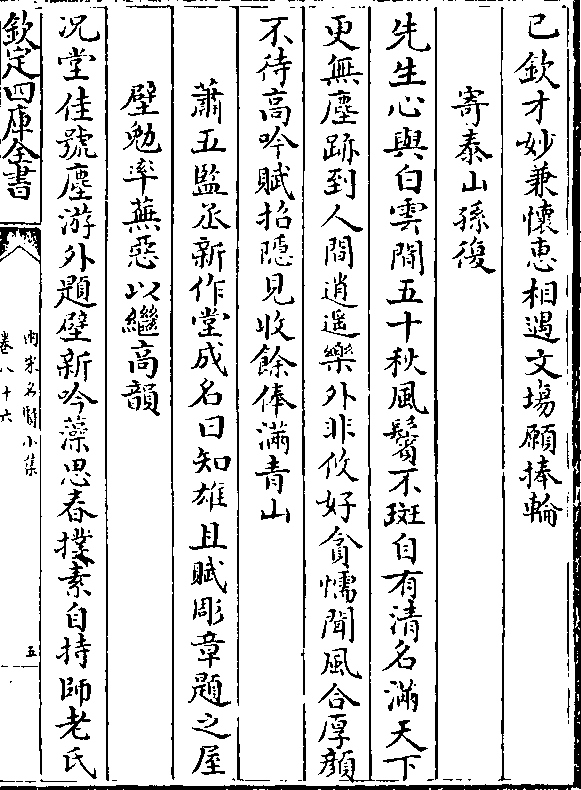 已欽才妙兼懷惠相遇文場願捧輪
寄泰山孫復
先生心與白雲閒五十秋風鬢不斑自有清名滿天下
更無塵跡到人間逍遥樂外非攸好貪懦聞風合厚顔
不待高吟賦招隱見收餘俸滿青山
蕭五監丞新作堂成名曰知雄且賦彫章題之屋
壁勉率蕪惡以繼高韻
況堂佳號塵游外題壁新吟藻思春撲素自持師老氏
欽定四庫全書
兩宋名賢小集
卷八十六
五